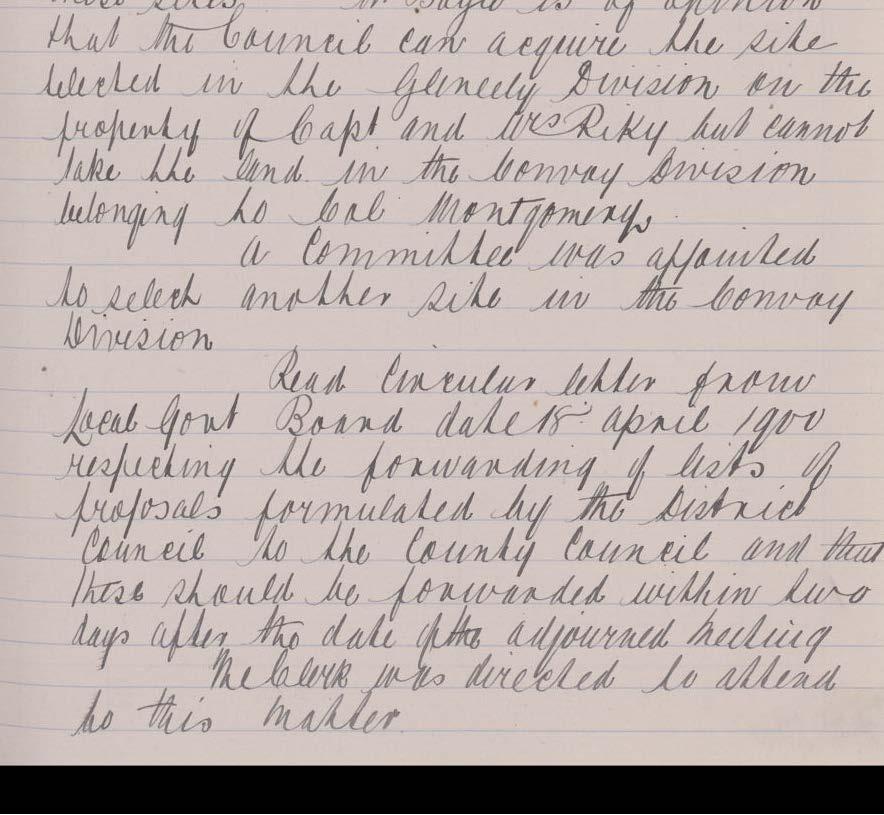 these sites. Mr Boyle is of opinion
that the Council can acquire the site
selected in the Gleneely Division on the
property of Capt and Mrs Riky but cannot
take the land in the Convoy Division
belonging to Col Montgomery.
A Committee was appointed
to select another site in the Convoy
Division
Read Circular letter from
Local Govt Board date 18th April 1900
respecting the forwarding of lists of
proposals formulated by the District
Council to the County Council and that
these should be forwarded within two
days after the date of the adjourned meeting
The Clerk was directed to attend
to this matter.